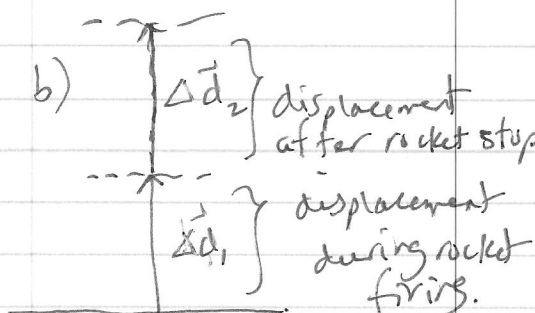 b)
Δd⃗₂ } displacement
after rocket stop
Δd⃗₁ } displacement
during rocket
firing.